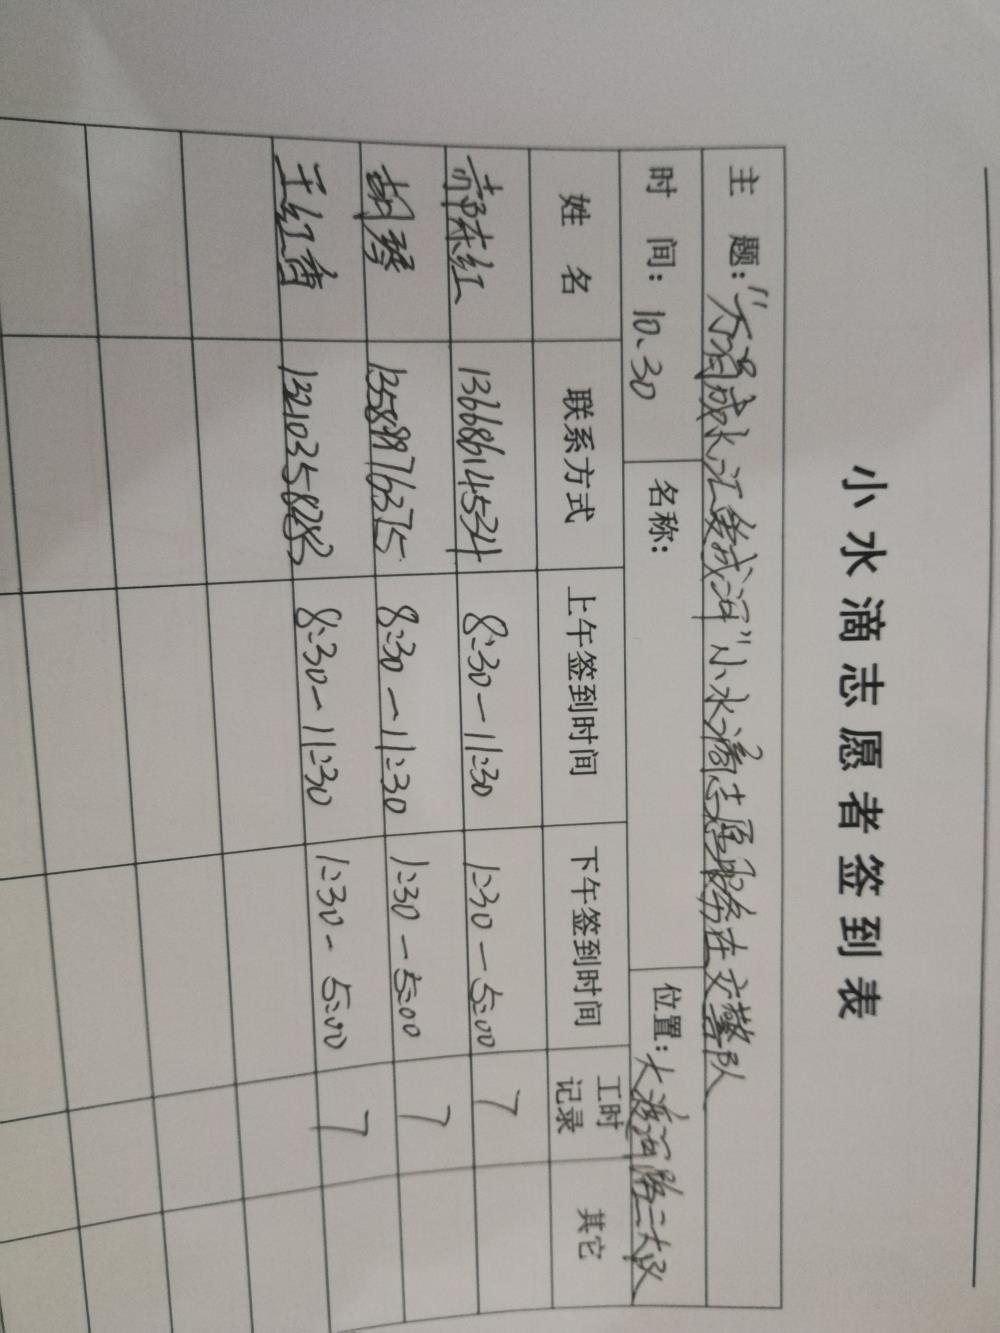 小水滴志愿者签到表
主 题：“万涓成水 汇善成河”小水滴志愿服务在交警队
时 间：10、30 名称： 位置：大渡河路二大队
姓 名 联系方式 上午签到时间 下午签到时间 工时记录 其它
东红 13668614534 8:30－11:30 1:30－5:00 7
胡琴 13589976375 8:30－11:30 1:30－5:00 7
王红香 13210358283 8:30－11:30 1:30－5:00 7